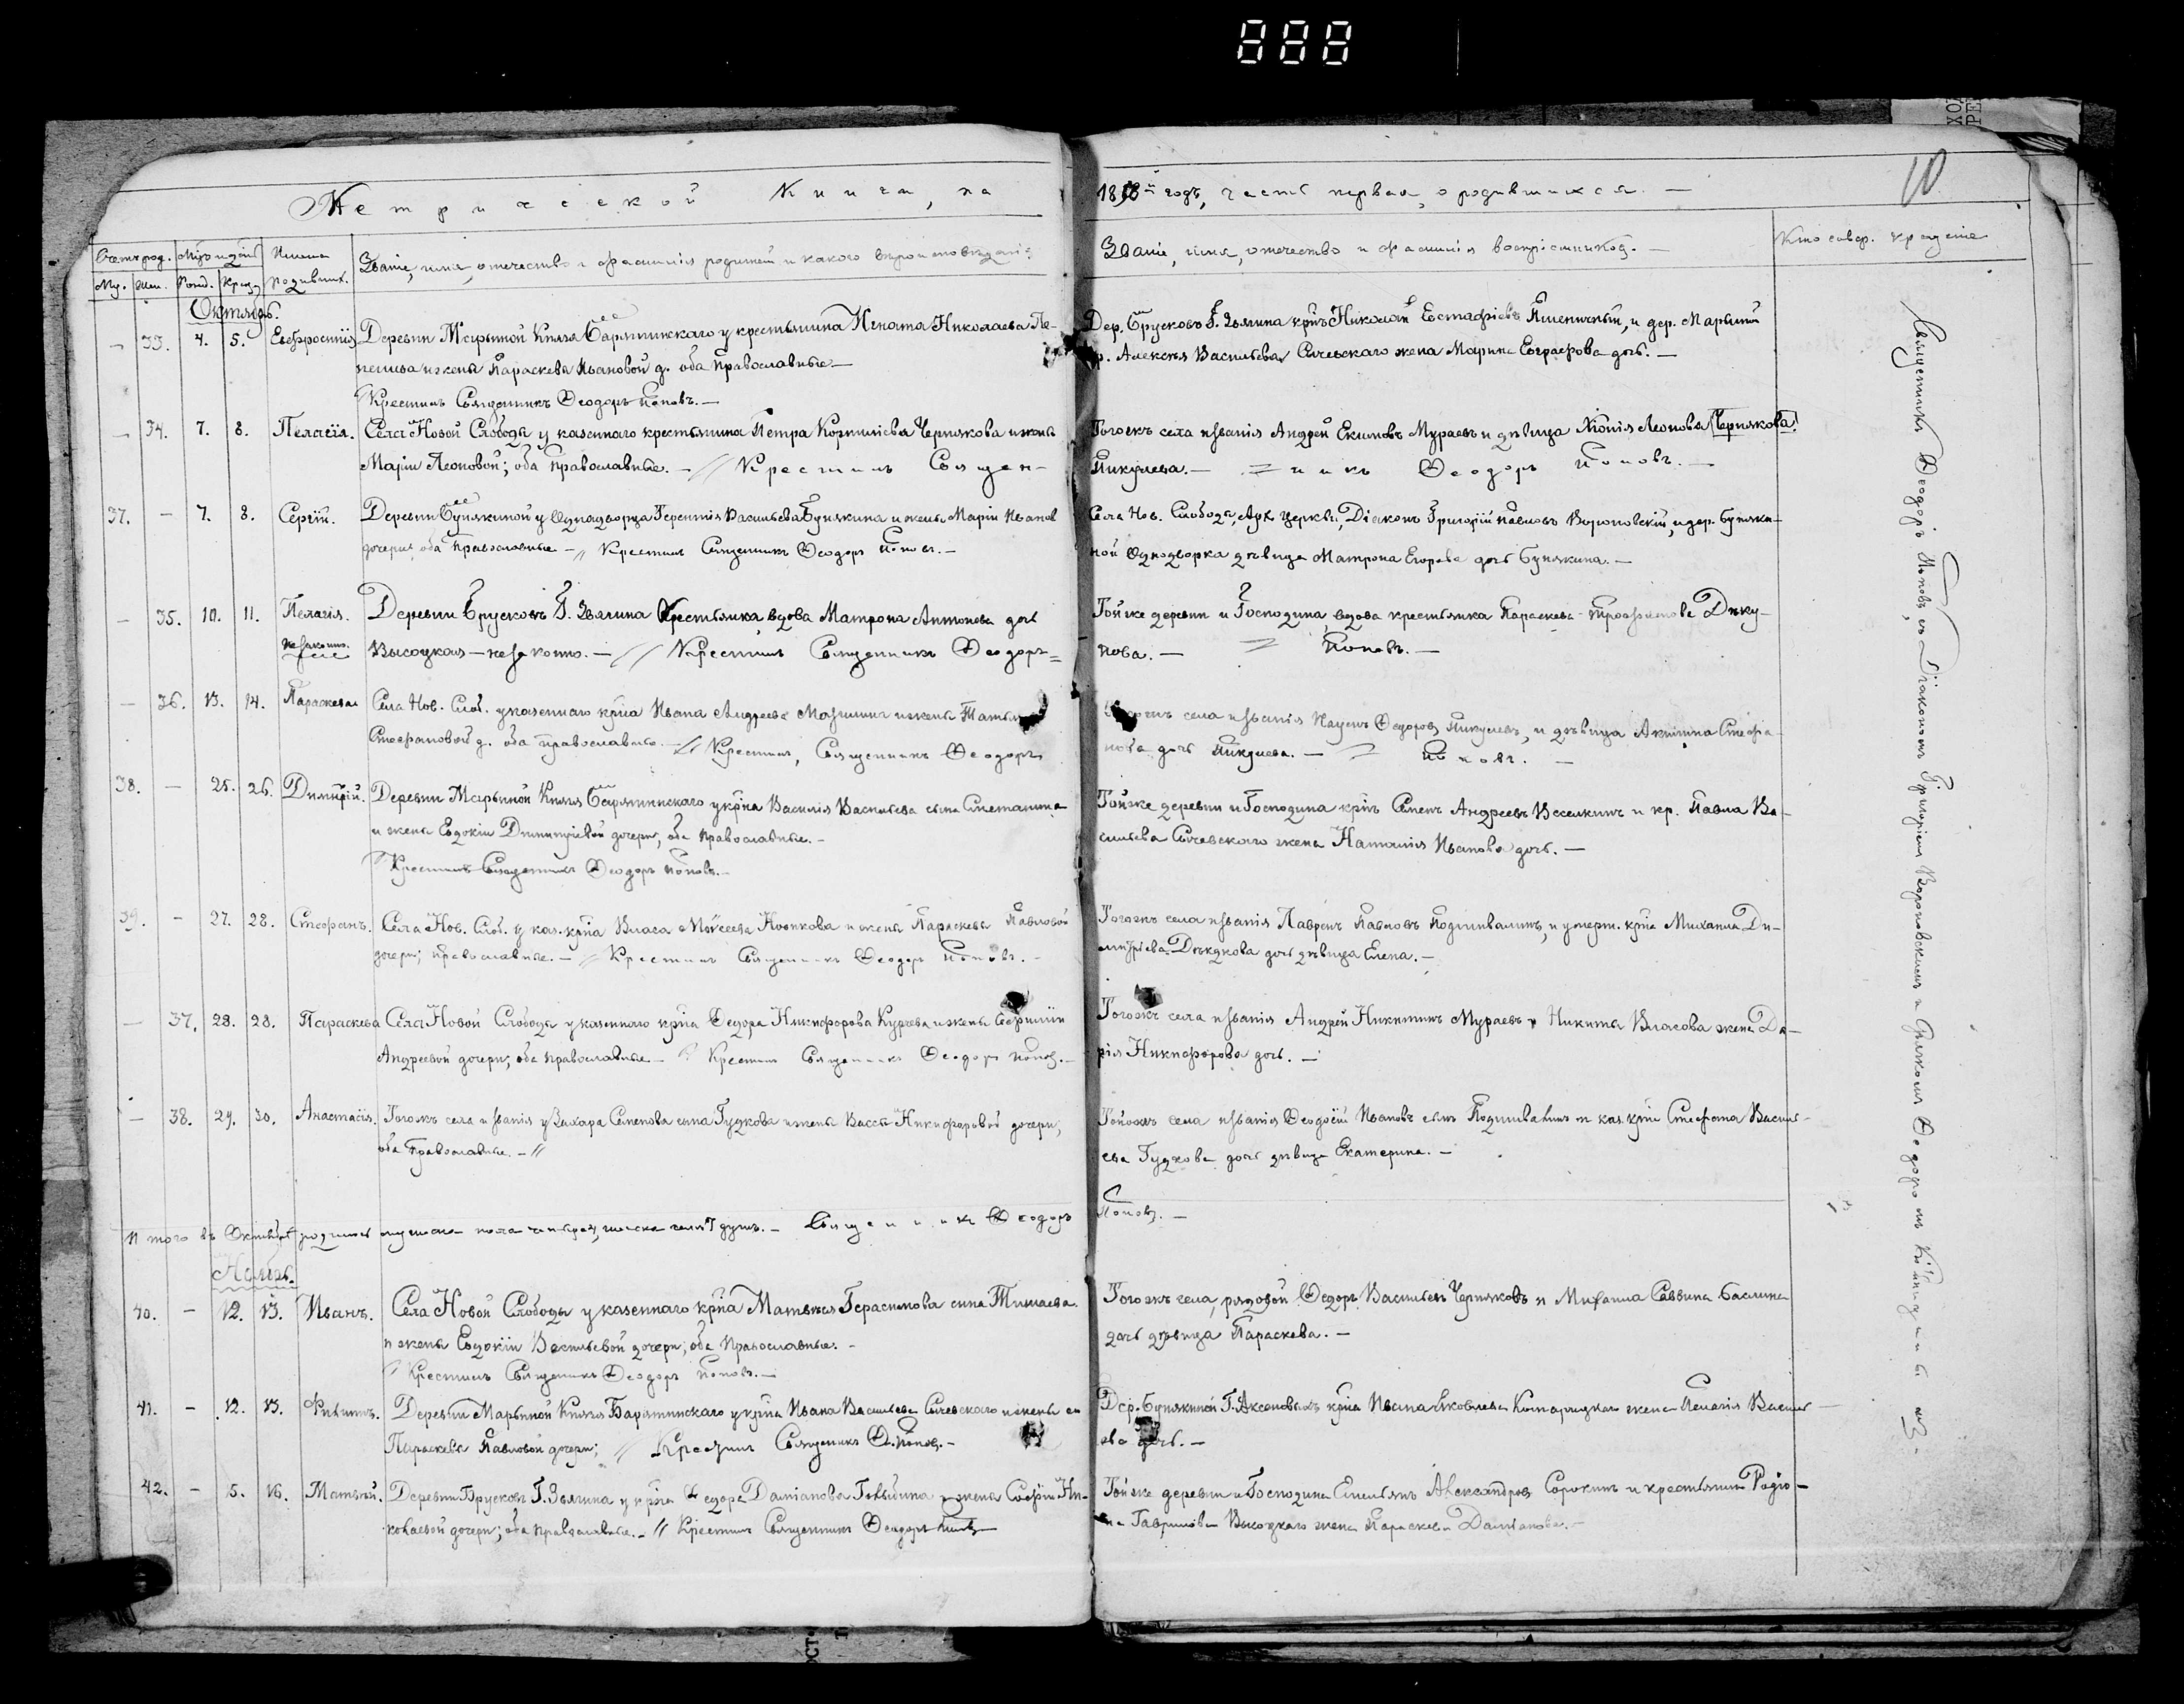 888
10
Метрической Книги, на
18 й годъ, часть первая, о родившихся. —
Звание, имя, отечество и фамилия родителей и какого вероисповедания
Званіе, имя, отечество и фамилія воспріемниковъ. —
Кто совер. крещеніе
Му. Жен. Рожд. Крещ.
Октябрь.
— 33. 4. 5. Евфросинія Деревни Марьиной Князя Барятинскаго у крестьянина Игната Николаева
и жены Параскева Ивановой д. оба православные —
Крестилъ Священникъ Ѳеодоръ Поповъ. —
Дер. Брусковъ Г. Звягина Николай Евстафіевъ Пшеничный, и дер. Марьиной
Алексѣя Васильева Сычевскаго жена Марина Евграфова дочь. —
— 34. 7. 8. Пелагія. Села Новой Слободы у казеннаго крестьянина Петра Корниліева Чернякова и жены
Маріи Леоновой; оба православные. — // Крестилъ Священ-
Тогожъ села и званія Андрей Екимовъ Мураевъ и дѣвица Леонова Чернякова
Пикулева. — = никъ Ѳеодоръ Поповъ. —
37. — 7. 8. Сергій. Деревни Бунякиной у Однодворца Терентія Васильева Бунякина и жены Маріи Иванов
дочери, оба православные — // Крестилъ Священникъ Ѳеодоръ Поповъ. —
Села Нов. Слободы, Арх. церкви, Діаконъ Григорій Павловъ Вороновскій, и дер. Буняки-
ной Однодворка дѣвица Матрона Егорова дочь Бунякина. —
— 35. 10. 11. Пелагія. Деревни Брусковъ Г. Звягина Крестьянка вдова Матрона Антонова дочь
незаконно. Высоцкая — незаконно. — // Крестилъ Священникъ Ѳеодоръ =
Тойже деревни и Господина, вдова крестьянка Параскева Трофимова Дику-
нова. — = Поповъ. —
— 36. 13. 14. Параскева Села Нов. Слоб. у казеннаго крна Ивана Андреева и жены
Стефановой д. оба православные. // Крестилъ, Священникъ Ѳеодоръ
села и званія Ѳедоровъ Пикулевъ, и дѣвица Акилина Стефа-
нова дочь Пикулева. — = Поповъ. —
38. — 25. 26. Димитрій. Деревни Марьиной Князя Барятинскаго у крна Василія Васильева сына Сметанина
и жены Евдокіи Димитріевой дочери, оба православные. —
Крестилъ Священникъ Ѳеодоръ Поповъ. —
Тойже деревни и Господина крнъ Семенъ Андреевъ Веселкинъ и кр. Павла Ва-
сильева Сычевскаго жена Наталія Иванова дочь. —
39. — 27. 28. Стефанъ. Села Нов. Слоб. у каз. крна Власа Моисеева и жены Параскевы Павловой
дочери; православные. — // Крестилъ Священникъ Ѳеодоръ Поповъ. —
Тогожъ села и званія Павловъ Подшиваловъ, и умерш. крна Михаила Ди-
митріева дочь дѣвица Елена. —
— 37. 28. 28. Параскева Села Новой Слободы у казеннаго крна Ѳедора Никифорова и жены
Андреевой дочери; оба православные — // Крестилъ Священникъ Ѳеодоръ Поповъ. —
Тогожъ села и званія Андрей Никитинъ Мураевъ и Никиты Власова жена Да-
рія Никифорова дочь. —
— 38. 29. 30. Анастасія. Тогожъ села и званія у Захара Семенова сына Гудкова и жены Вассы Никифоровой дочери;
оба православные. — //
села и званія Ѳеодосій Ивановъ сынъ и каз. крна Стефана Василь-
ева Гудкова дочь дѣвица Екатерина. —
Итого въ Октябрѣ родилось мужеска пола четыре, женска душъ. — Священникъ Ѳеодоръ
Поповъ. —
Ноябрь.
40. — 12. 13. Иванъ. Села Новой Слободы у казеннаго крна Матвѣя Герасимова сына
и жены Евдокіи Васильевой дочери; оба православные. —
Крестилъ Священникъ Ѳеодоръ Поповъ. —
Тогожъ села, рядовой Ѳедоръ Васильевъ Черняковъ и Михаила Саввина
дочь дѣвица Параскева. —
41. — 12. 13. Филиппъ. Деревни Марьиной Князя Барятинскаго у крна Ивана Васильева Сычевскаго и жены ее
Параскевы Павловой дочери; // Крестилъ Священникъ Ѳ. Поповъ. —
Дер. Бунякиной Г. Аксеновыхъ крна Ивана Яковлева жена Пелагія Василь
ева дочь. —
42. — 15. 16. Матвѣй. Деревни Брусковъ Г. Звягина у крна Ѳедора Даміанова и жены Софіи Ни-
колаевой дочери; оба православные. — // Крестилъ Священникъ Ѳеодоръ Поповъ —
Тойже деревни и Господина Емельянъ Александровъ Сорокинъ и крестьянина Родіо-
на Гаврилова Высоцкаго жена Параскева Даміанова. —
Священникъ Ѳеодоръ Поповъ, съ Діакономъ Григоріемъ Вороновскимъ и Дьякомъ Ѳедоромъ